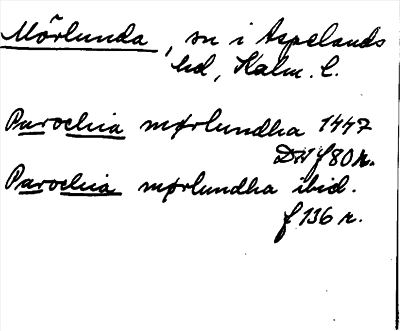 Mörlunda, sn i Aspelands
hd, Kalm. l.
Parochia mørlundha 1447
DN f 80 r.
Parochia mørlundha ibid.
f 136 r.